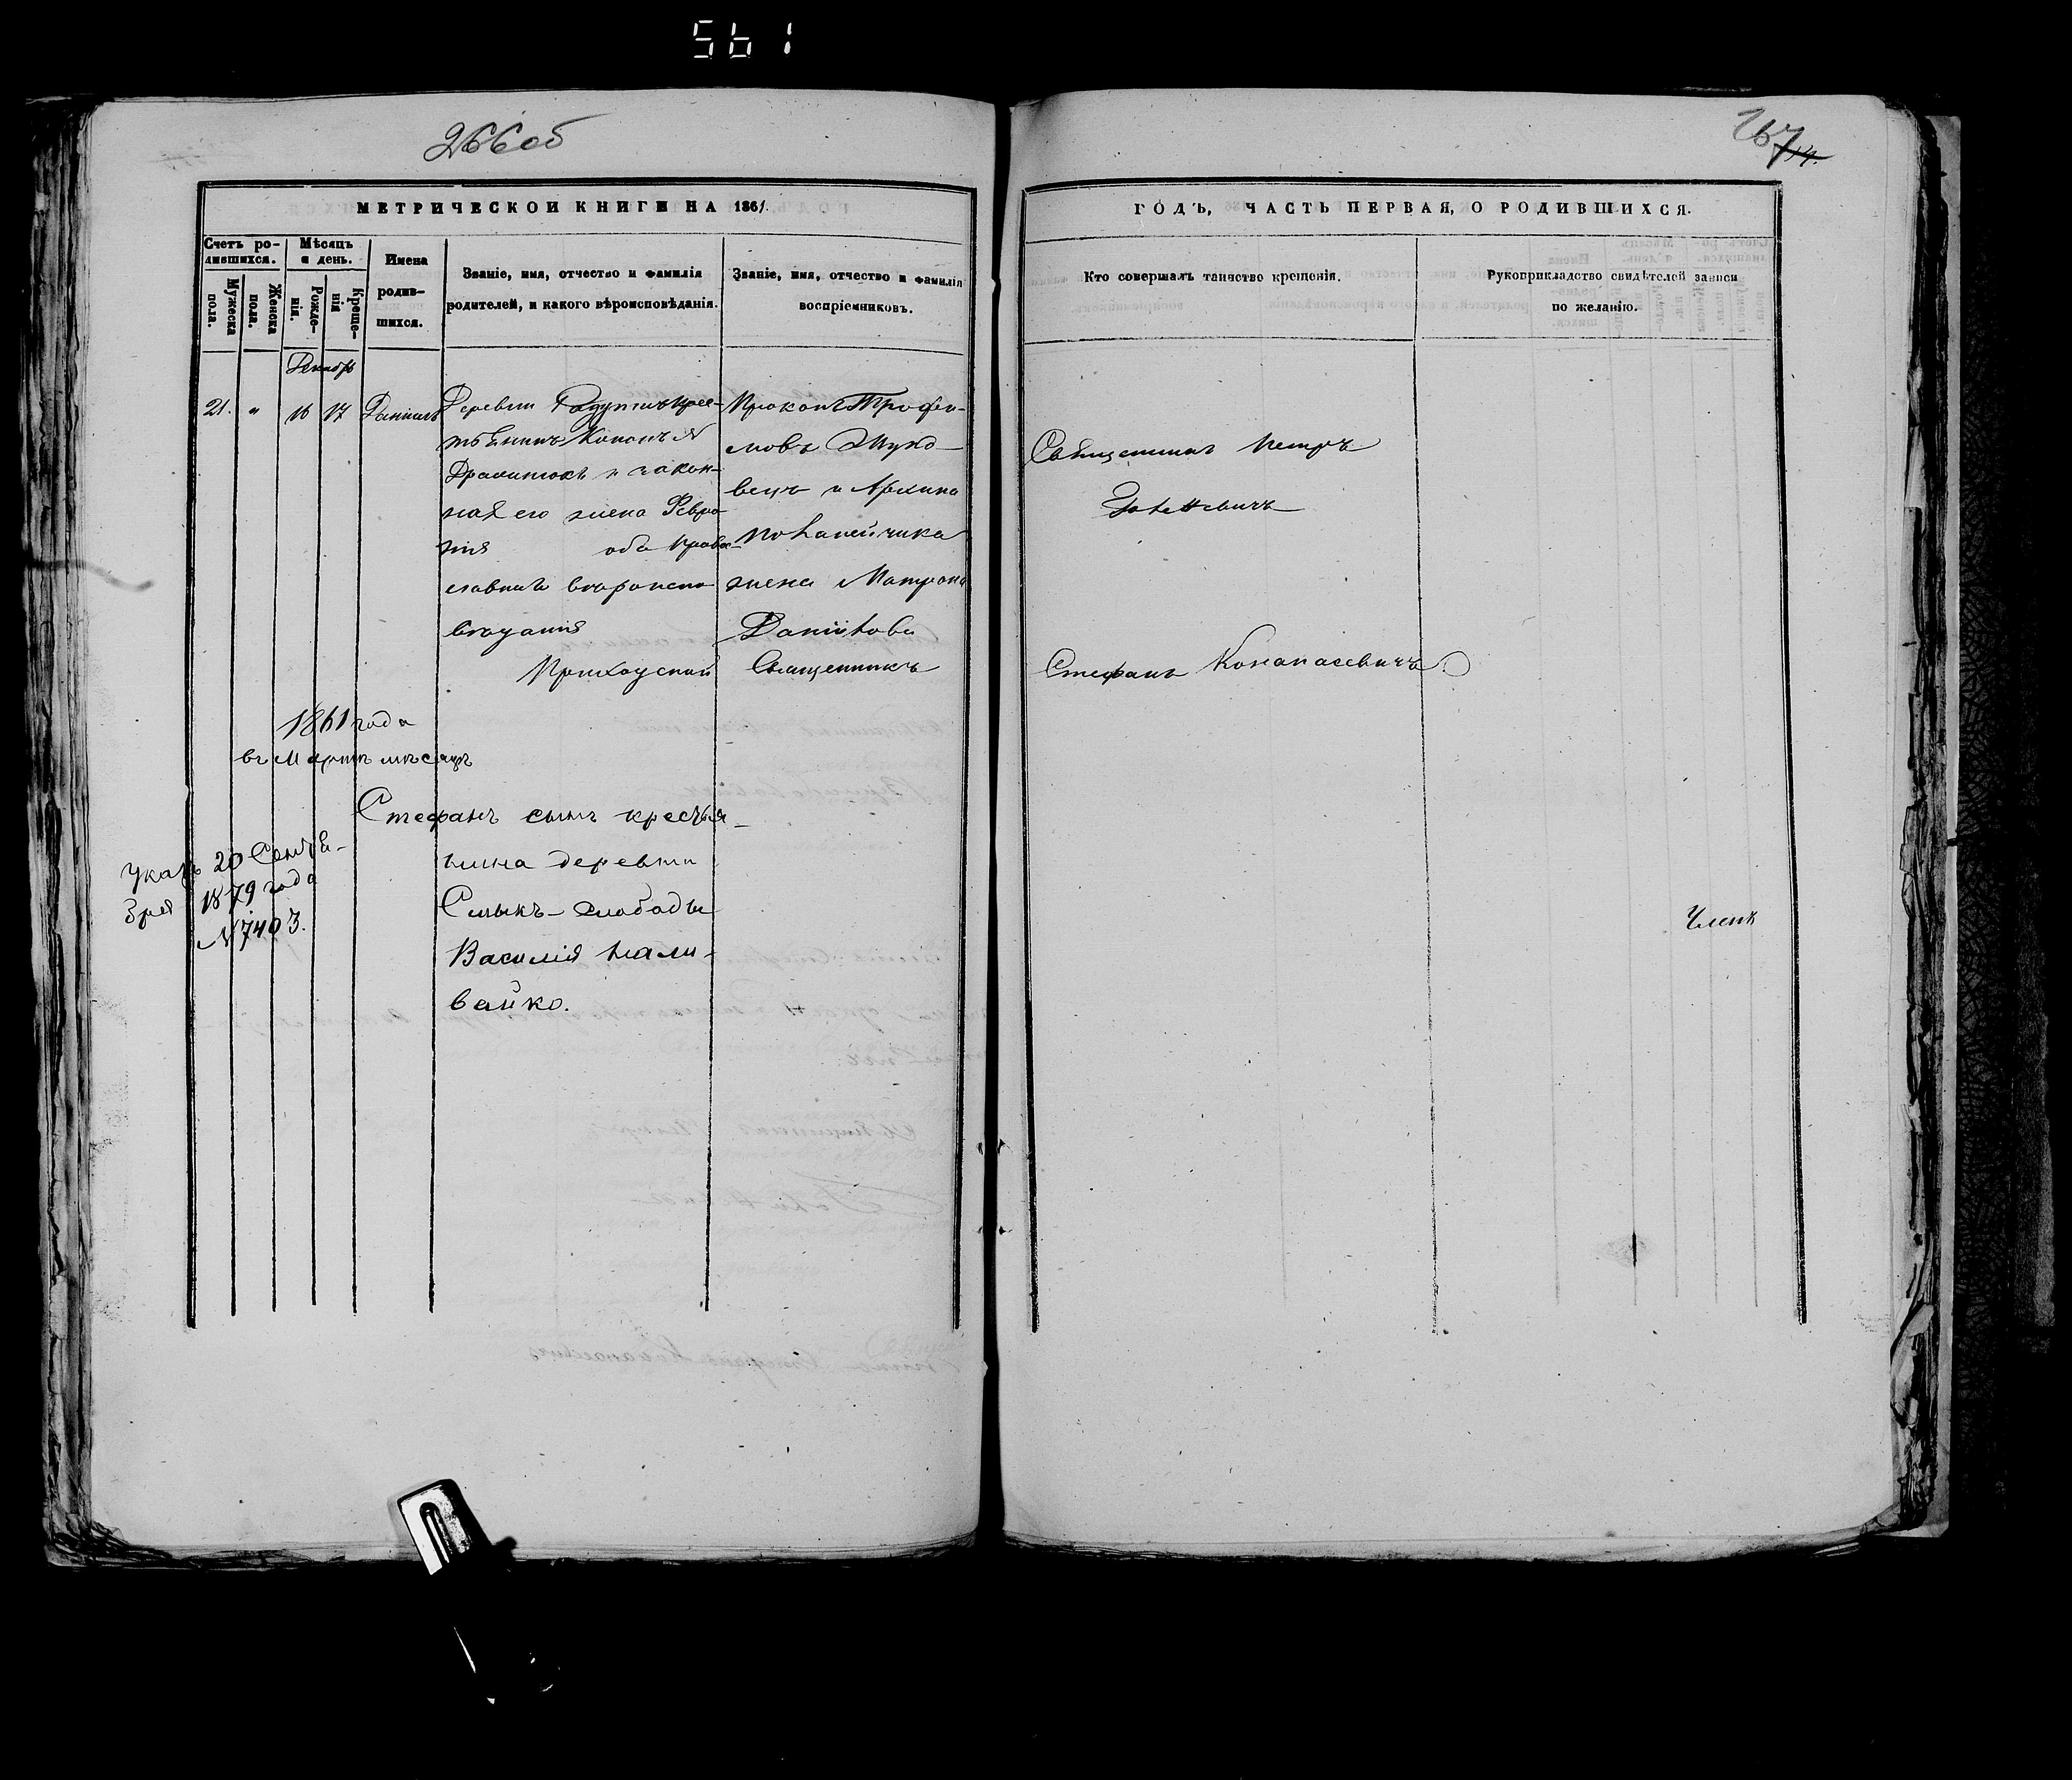 561
266об
267
МЕТРИЧЕСКОЙ КНИГИ НА 1861
ГОДЪ, ЧАСТЬ ПЕРВАЯ, О РОДИВШИХСЯ.
Счетъ ро-
дившихся.
Мужеска
пола.
Женска
пола.
Мѣсяцъ
и день.
Рожде-
нія.
Креще-
нія
Имена
родив-
шихся.
Званіе, имя, отчество и фамилія
родителей, и какого вѣроисповѣданія.
Званіе, имя, отчество и фамилія
воспріемниковъ.
Кто совершалъ таинство крещенія.
Рукоприкладство свидѣтелей записи
по желанію.
Декабрь
21. " 16 17 Даніилъ
Деревни крес-
тьянинъ Кононъ
и закон-
ная его жена Февро-
нія оба право-
славнаго вѣроиспо-
вѣданія
Прокопъ Трофи-
мовъ Жуко-
вецъ и Архипа
жена Матрона
Данилова
Священникъ Петръ
Приходскій Священникъ Стефанъ
1861 года
въ Мартѣ мѣсяцѣ
Стефанъ сынъ крестья-
нина деревни
Смыкъ-Слободы
Василія Нали-
вайко.
Указъ 20 Сентя-
бря 1879 года
№ 7403.
Членъ